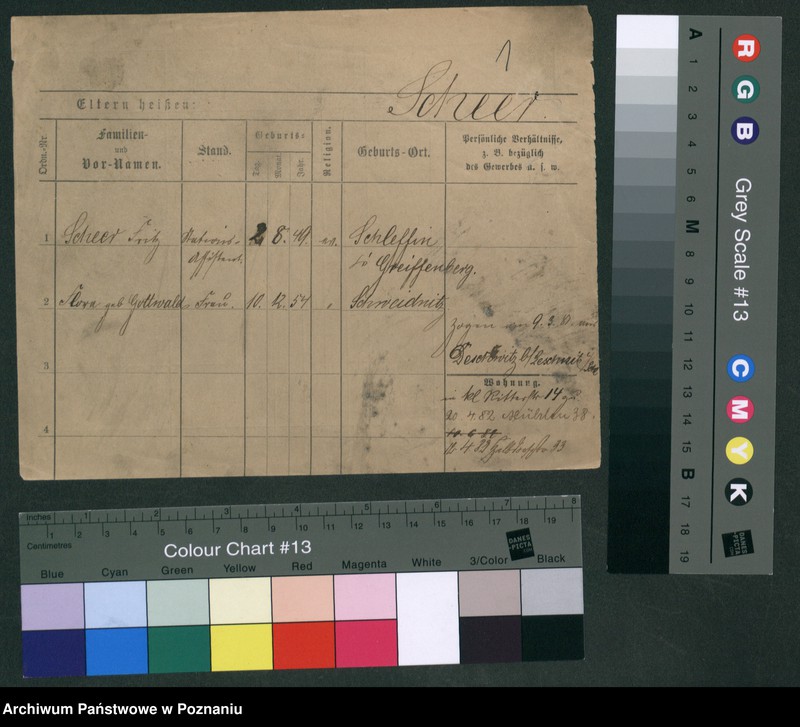 1
Scheer.
Eltern heißen:
Ordn.-Nr.
Familien-
und
Vor-Namen.
Stand.
Geburts-
Tag.
Monat.
Jahr.
Religion.
Geburts-Ort.
Persönliche Verhältnisse,
z. B. bezüglich
des Gewerbes u. s. w.
1 Scheer Fritz 2 8. 49. ev. Schleffin
Assistent. Greiffenberg.
2 Flora geb Gottwald Frau. 10. 12. 54 " Schweidnitz
zogen 9. 3. 
3
Wohnung.
kl Ritterstr 14
4.82 Mühlen 38.
4
4 82 33
inches 1 2 3 4 5 6 7 8
1 2 3 4 5 6 7 8 9 10 11 12 13 14 15 16 17 18 19
Centimetres
Colour Chart #13
DANES
PICTA
Blue Cyan Green Yellow Red Magenta White 3/Color Black
R G B
Grey Scale #13
C M Y K
A 1 2 3 4 5 6 M 8 9 10 11 12 13 14 15 B 17 18 19
DANES
PICTA
Archiwum Państwowe w Poznaniu